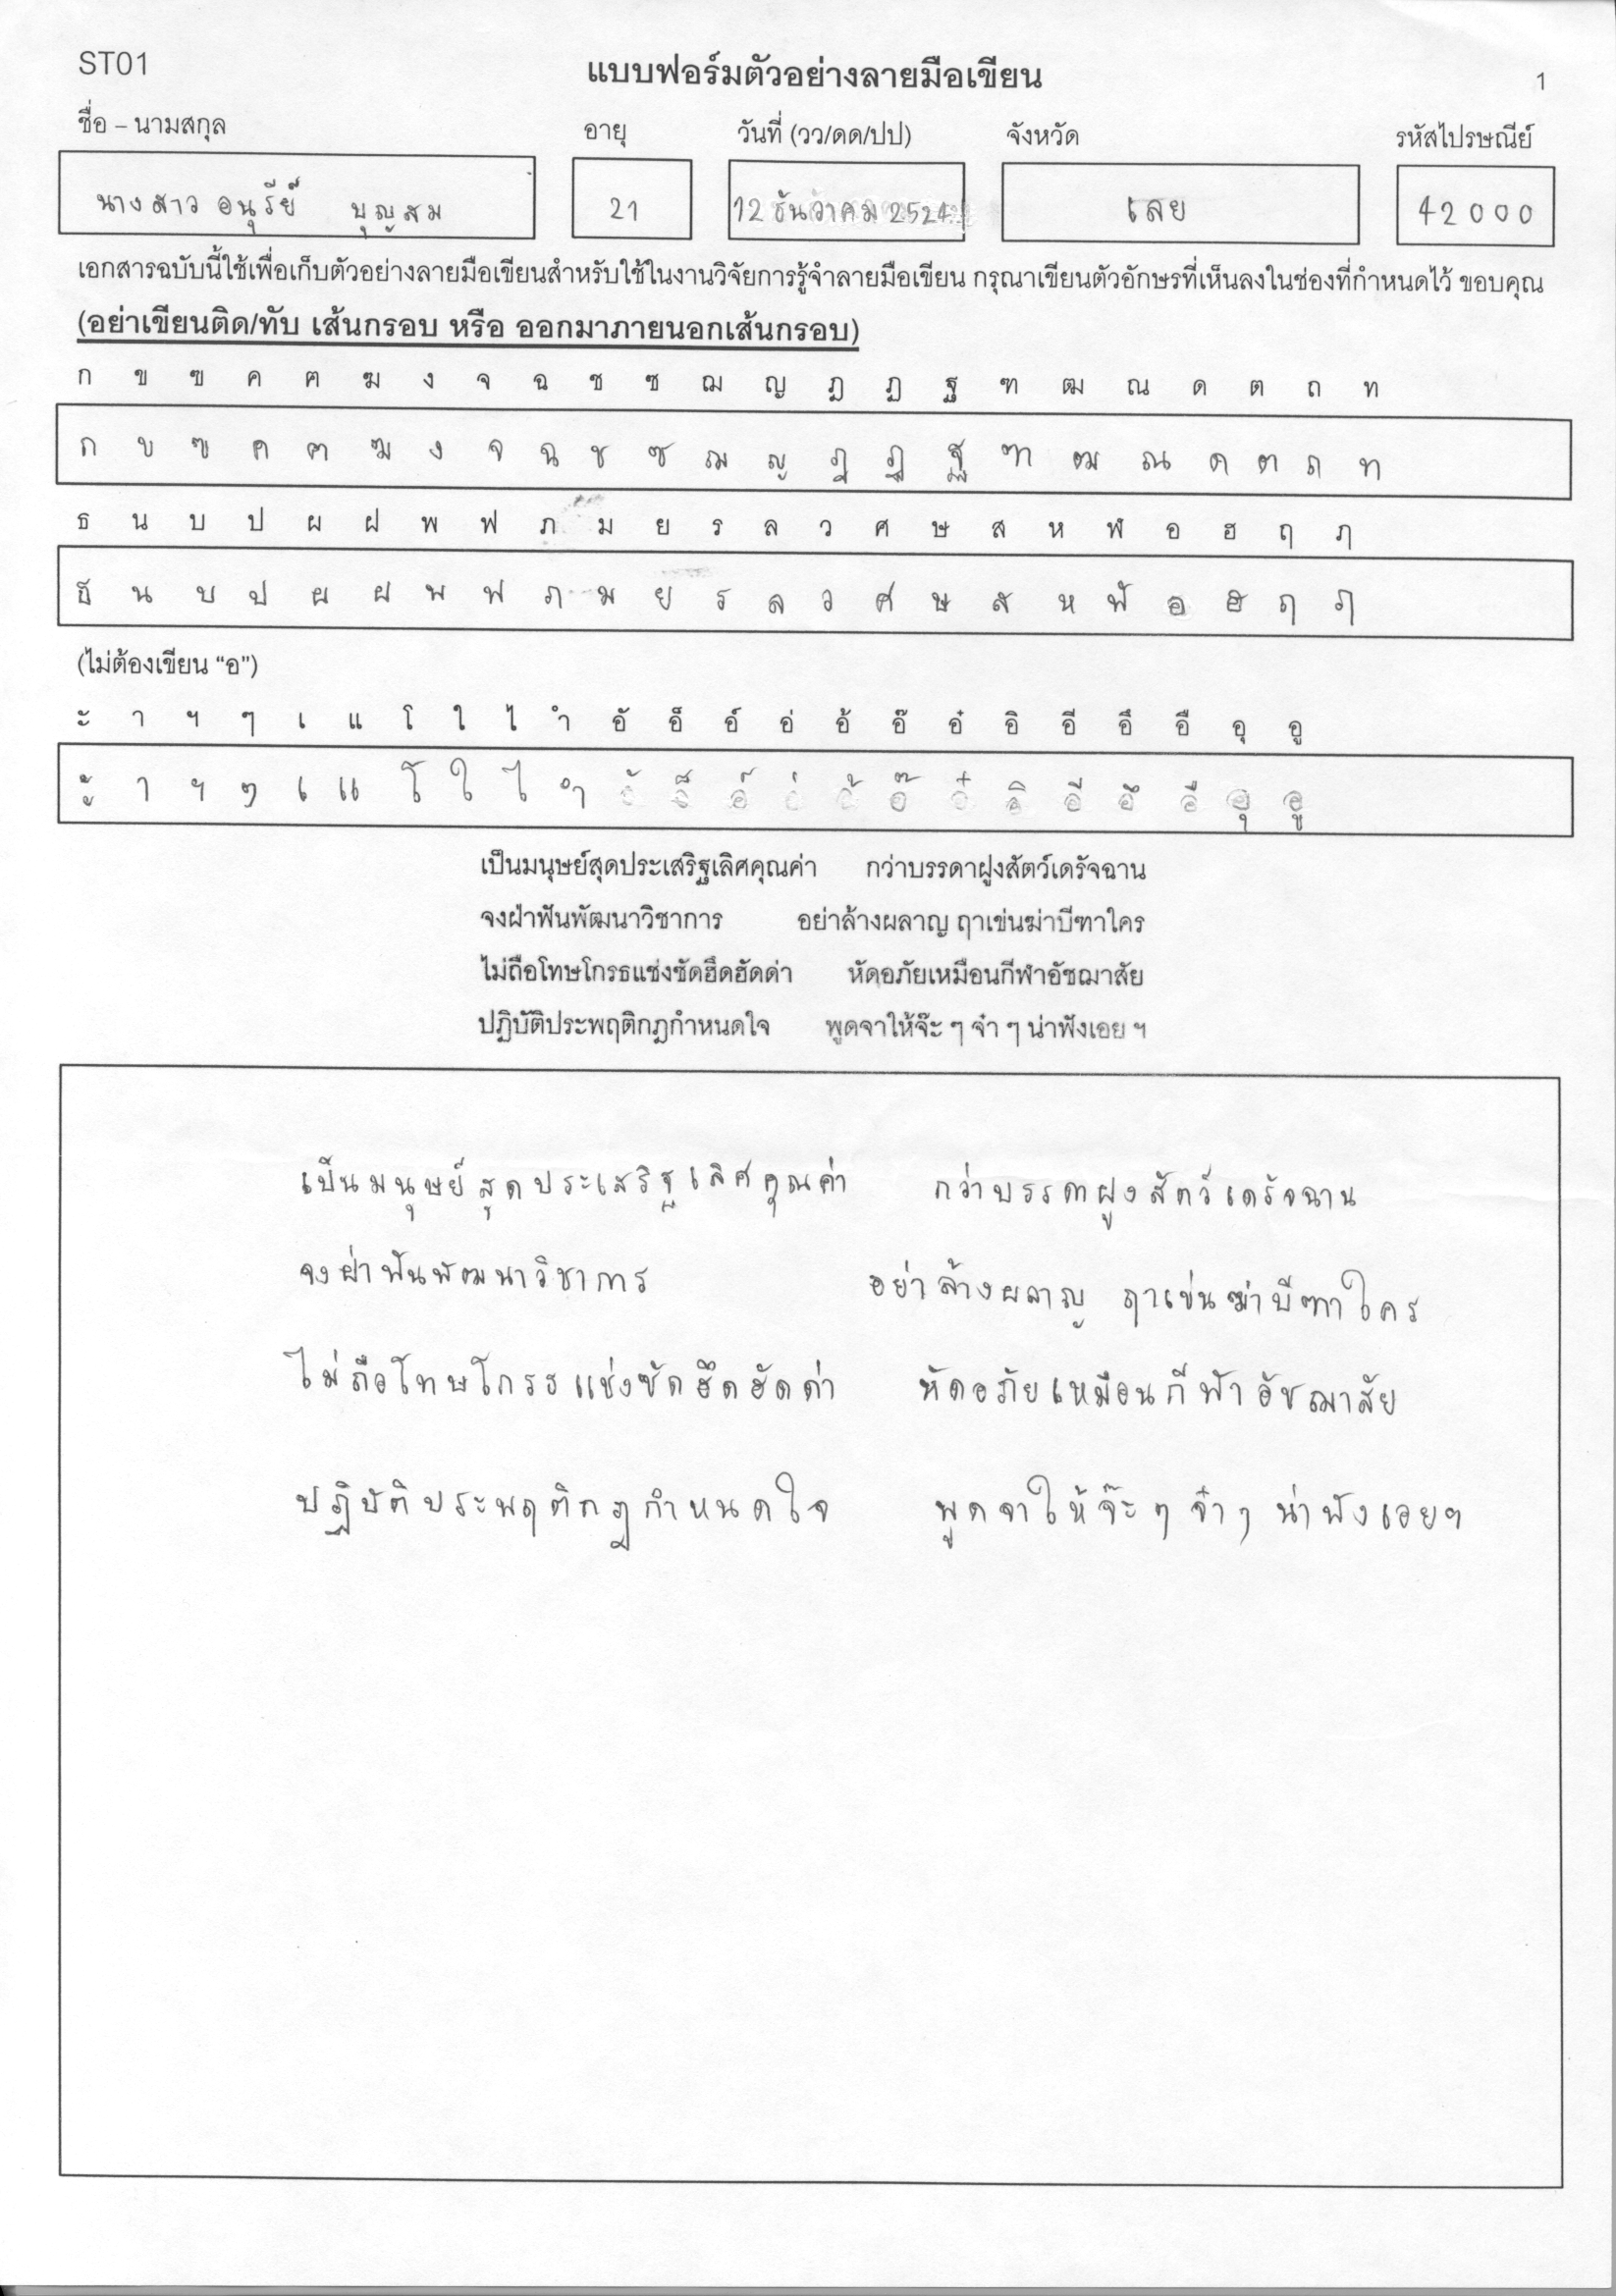 ST01 แบบฟอร์มตัวอย่างลายมือเขียน 1
ชื่อ – นามสกุล อายุ วันที่ (วว/ดด/ปป) จังหวัด รหัสไปรษณีย์
นางสาว อนุรีย์ บุญสม 21 12 ธันวาคม 2524 เลย 42000
เอกสารฉบับนี้ใช้เพื่อเก็บตัวอย่างลายมือเขียนสำหรับใช้ในงานวิจัยการรู้จำลายมือเขียน กรุณาเขียนตัวอักษรที่เห็นลงในช่องที่กำหนดไว้ ขอบคุณ
(อย่าเขียนติด/ทับ เส้นกรอบ หรือ ออกมาภายนอกเส้นกรอบ)
ก ข ฃ ค ฅ ฆ ง จ ฉ ช ซ ฌ ญ ฎ ฏ ฐ ฑ ฒ ณ ด ต ถ ท
ก ข ฃ ค ฅ ฆ ง จ ฉ ช ซ ฌ ญ ฎ ฏ ฐ ฑ ฒ ณ ด ต ถ ท
ธ น บ ป ผ ฝ พ ฟ ภ ม ย ร ล ว ศ ษ ส ห ฬ อ ฮ ฤ ฦ
ธ น บ ป ผ ฝ พ ฟ ภ ม ย ร ล ว ศ ษ ส ห ฬ อ ฮ ฤ ฦ
(ไม่ต้องเขียน “อ”)
ะ า ฯ ๆ เ แ โ ใ ไ ำ อั อ็ อ์ อ่ อ้ อ๊ อ๋ อิ อี อึ อื อุ อู
ะ า ฯ ๆ เ แ โ ใ ไ ำ อั อ็ อ์ อ่ อ้ อ๊ อ๋ อิ อี อึ อื อุ อู
เป็นมนุษย์สุดประเสริฐเลิศคุณค่า กว่าบรรดาฝูงสัตว์เดรัจฉาน
จงฝ่าฟันพัฒนาวิชาการ อย่าล้างผลาญ ฤาเข่นฆ่าบีฑาใคร
ไม่ถือโทษโกรธแช่งซัดฮึดฮัดด่า หัดอภัยเหมือนกีฬาอัชฌาสัย
ปฏิบัติประพฤติกฎกำหนดใจ พูดจาให้จ๊ะ ๆ จ๋า ๆ น่าฟังเอย ฯ
เป็นมนุษย์สุดประเสริฐเลิศคุณค่า กว่าบรรดาฝูงสัตว์เดรัจฉาน
จงฝ่าฟันพัฒนาวิชาการ อย่าล้างผลาญ ฤาเข่นฆ่าบีฑาใคร
ไม่ถือโทษโกรธแช่งซัดฮึดฮัดด่า หัดอภัยเหมือนกีฬาอัชฌาสัย
ปฏิบัติประพฤติกฎกำหนดใจ พูดจาให้จ๊ะ ๆ จ๋า ๆ น่าฟังเอยฯ